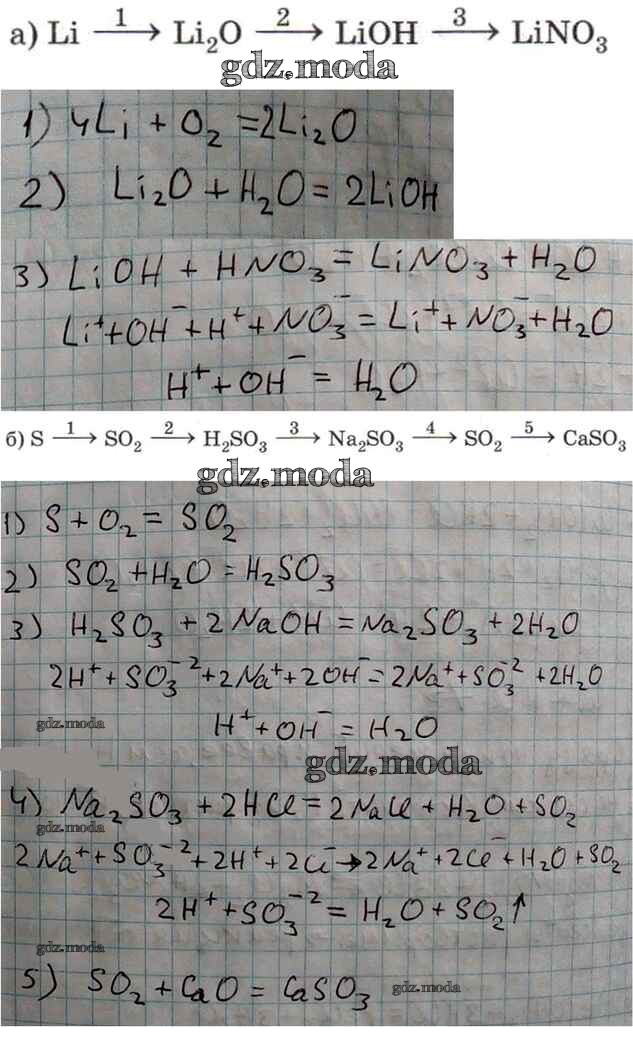 а) Li —1→ Li₂O —2→ LiOH —3→ LiNO₃
gdz.moda
1) 4Li + O₂ = 2Li₂O
2) Li₂O + H₂O = 2LiOH
3) LiOH + HNO₃ = LiNO₃ + H₂O
Li⁺ + OH⁻ + H⁺ + NO₃⁻ = Li⁺ + NO₃⁻ + H₂O
H⁺ + OH⁻ = H₂O
б) S —1→ SO₂ —2→ H₂SO₃ —3→ Na₂SO₃ —4→ SO₂ —5→ CaSO₃
gdz.moda
1) S + O₂ = SO₂
2) SO₂ + H₂O = H₂SO₃
3) H₂SO₃ + 2NaOH = Na₂SO₃ + 2H₂O
2H⁺ + SO₃⁻² + 2Na⁺ + 2OH⁻ = 2Na⁺ + SO₃⁻² + 2H₂O
gdz.moda
H⁺ + OH⁻ = H₂O
gdz.moda
4) Na₂SO₃ + 2HCl = 2NaCl + H₂O + SO₂
gdz.moda
2Na⁺ + SO₃⁻² + 2H⁺ + 2Cl⁻ → 2Na⁺ + 2Cl⁻ + H₂O + SO₂
2H⁺ + SO₃⁻² = H₂O + SO₂↑
gdz.moda
5) SO₂ + CaO = CaSO₃
gdz.moda